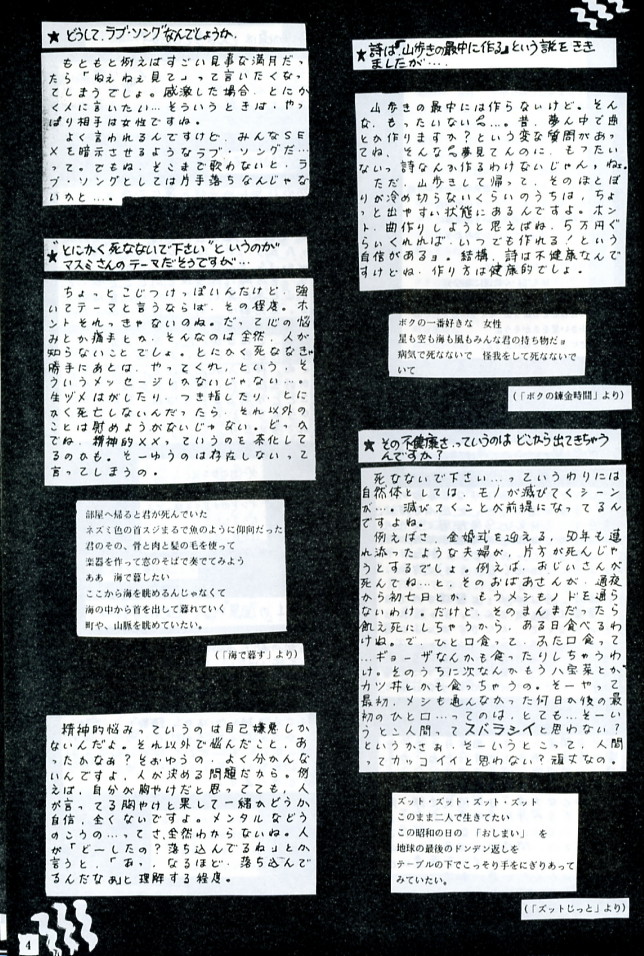 ★どうして、ラブ・ソングなんでしょうか。
もともと例えばすごい見事な満月だっ
たら「ねぇねぇ見て」って言いたくなっ
てしまうでしょ。感激した場合、とにか
く人に言いたい…そういうときは、やっ
ぱり相手は女性ですね。
よく言われるんですけど、みんなSE
Xを暗示させるようなラブ・ソングだ…
って。でもね、そこまで歌わないと、ラ
ブ・ソングとしては片手落ちなんじゃな
いかと…。
★"とにかく死なないで下さい"というのが
マスミさんのテーマだそうですが…
ちょっとこじつけっぽいんだけど、強
いてテーマと言うならば、その程度。ホ
ントそれっきゃないのね。だって心の悩
みとか痛手とか、そんなのは全然、人が
知らないことでしょ。とにかく死ななきゃ
勝手にあとは、やってくれ、という、そ
ういうメッセージしかないじゃない…。
生ヅメはがしたり、つき指したり、とに
かく死亡しないんだったら、それ以外の
ことは慰めようがないじゃない。どっか
でね、精神的××っていうのを茶化して
るのかも。そーゆうのは存在しないって
言ってしまうの。
部屋へ帰ると君が死んでいた
ネズミ色の首スジまるで魚のように仰向だった
君のその、骨と肉と髪の毛を使って
楽器を作って窓のそばで奏でてみよう
ああ　海で暮したい
ここから海を眺めるんじゃなくて
海の中から首を出して暮れていく
町や、山脈を眺めていたい。
（「海で暮す」より）
精神的悩みっていうのは自己嫌悪しか
ないんだよ。それ以外で悩んだこと、あ
ったかなぁ？そおゆうの、よく分かんな
いんですよ、人が決める問題だから。例
えば、自分が胸やけだと思ってても、人
が言ってる胸やけと果して一緒かどうか
自信、全くないですよ。メンタルなどう
のこうの…ってさ、全然わからないね。人
が「どーしたの？落ち込んでるね」とか
言うと、「あっ、なるほど、落ち込んで
るんだなぁ」と理解する程度。
★詩は『山歩きの最中に作る』という説をきき
ましたが…。
山歩きの最中には作らないけど。そん
な、もったいない…。昔、夢ん中で曲
とか作りますか？という変な質問があっ
てね、そんな夢見てんのに、もったい
ないっ詩なんか作るわけないじゃん、ねぇ。
ただ、山歩きして帰って、そのほとぼ
りが冷め切らないくらいのうちは、ちょ
っと出やすい状態にあるんですよ。ホン
ト、曲作りしようと思えばね、5万円ぐ
らいくれれば、いつでも作れる！という
自信があるョ。結構、詩は不健康なんで
すけどね、作り方は健康的でしょ。
ボクの一番好きな　女性
星も空も海も風もみんな君の持ち物だョ
病気で死なないで　怪我をして死なないで
いて
（「ボクの錬金時間」より）
★その不健康さ、っていうのはどこから出てきちゃう
んですか？
死なないで下さい…っていうわりには
自然体としては、モノが滅びてくシーン
が…。滅びてくことが前提になってるん
ですよね。
例えばさ、金婚式を迎える、50年も連
れ添ったような夫婦が、片方が死んじゃ
うとするでしょ。例えば、おじいさんが
死んでね…と、そのおばあさんが、通夜
から初七日とか、もうメシもノドを通ら
ないわけ。だけど、そのまんまだったら
飢え死にしちゃうから、ある日食べるわ
けね。で、ひと口食って、ふた口食って
…ギョーザなんかも食ったりしちゃうわ
け。そのうちに次なんかもう八宝菜とか
カツ丼とかも食っちゃうの。そーやって
最初、メシも通んなかった何日か後の最
初のひと口…ってのは、とても…そーい
うとこ人間ってスバラシイと思わない？
というかさぁ、そーいうとこって、人間
ってカッコイイと思わない？頑丈なの。
ズット・ズット・ズット・ズット
このまま二人で生きてたい
この昭和の日の　「おしまい」　を
地球の最後のドンデン返しを
テーブルの下でこっそり手をにぎりあって
みていたい。
（「ズットじっと」より）
4